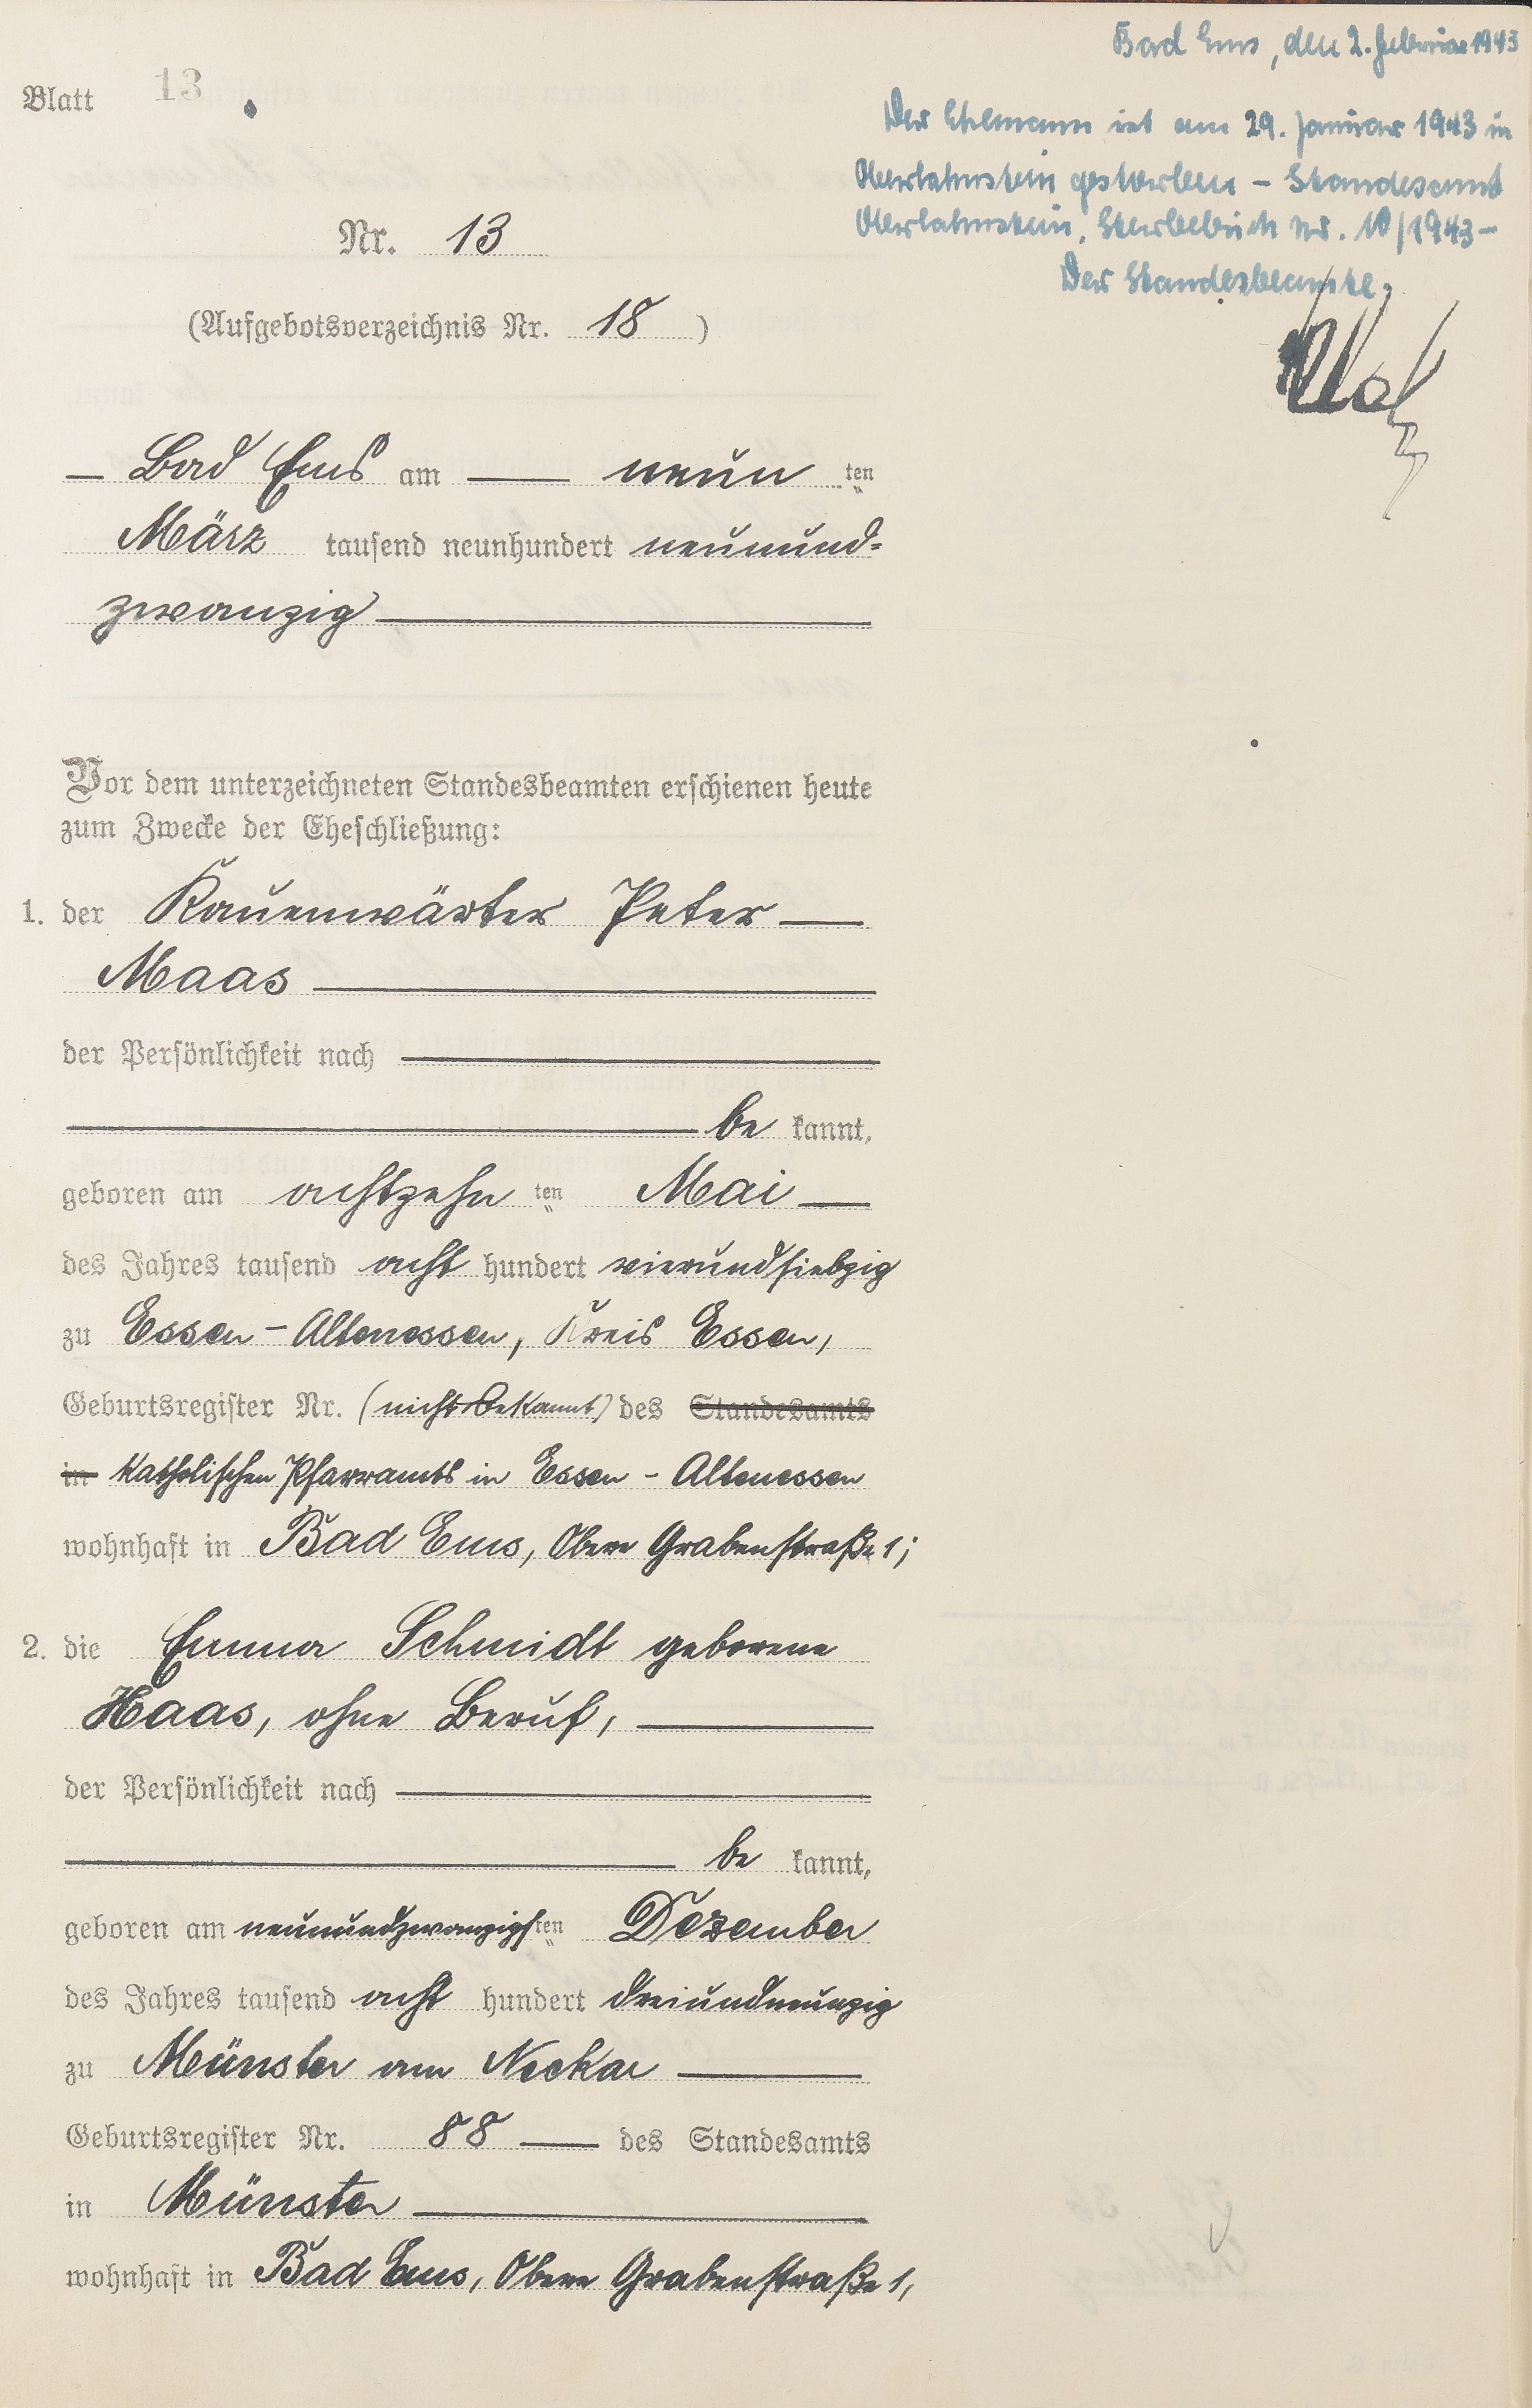 Bad Ems, den 2. Februar 1943
Blatt 13
Der Ehemann ist am 29. Januar 1943 in
Oberlahnstein gestorben – Standesamt
Oberlahnstein, Sterbebuch Nr. 10/1943 –
Der Standesbeamte,
Nr. 13
(Aufgebotsverzeichnis Nr. 18 )
— Bad Ems am — neun ten
März tausend neunhundert neunund-
zwanzig
Vor dem unterzeichneten Standesbeamten erschienen heute
zum Zwecke der Eheschließung:
1. der Kauenwärter Peter —
Maas
der Persönlichkeit nach
be kannt,
geboren am achtzehn ten Mai —
des Jahres tausend acht hundert vierundsiebzig
zu Essen - Altenessen, Kreis Essen,
Geburtsregister Nr. (nicht bekannt) des Standesamts
in Katholischen Pfarramts in Essen - Altenessen
wohnhaft in Bad Ems, Obere Grabenstraße 1;
2. die Emma Schmidt geborene
Haas, ohne Beruf,
der Persönlichkeit nach
be kannt,
geboren am neunundzwanzigsten Dezember
des Jahres tausend acht hundert dreiundneunzig
zu Münster am Neckar
Geburtsregister Nr. 88 — des Standesamts
in Münster
wohnhaft in Bad Ems, Obere Grabenstraße 1,